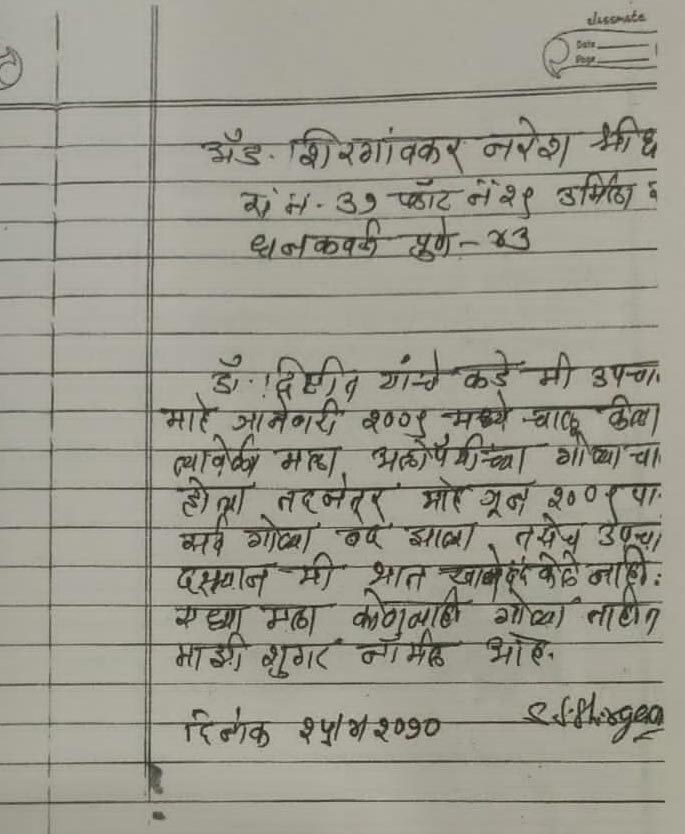 classmate
Date
Page
ॲड. शिरगांवकर नरेश श्रीध
स. नं. ३७ प्लॉट नं २९ उर्मिला
धनकवडी पुणे - ४३
डॉ. दिक्षीत यांचे कडे मी उपचा
माहे जानेवारी २००९ मध्ये चालू केला
त्यावेळी मला अलोपॅथीच्या गोळ्या चा
होत्या तदनंतर माहे जून २००९ पा
सर्व गोळ्या बंद झाल्या तसेच उपचा
दरम्यान मी भात खाणे बंद केले नाही.
सध्या मला कोणत्याही गोळ्या नाहीत
माझी शुगर नॉर्मल आहे.
दिनांक